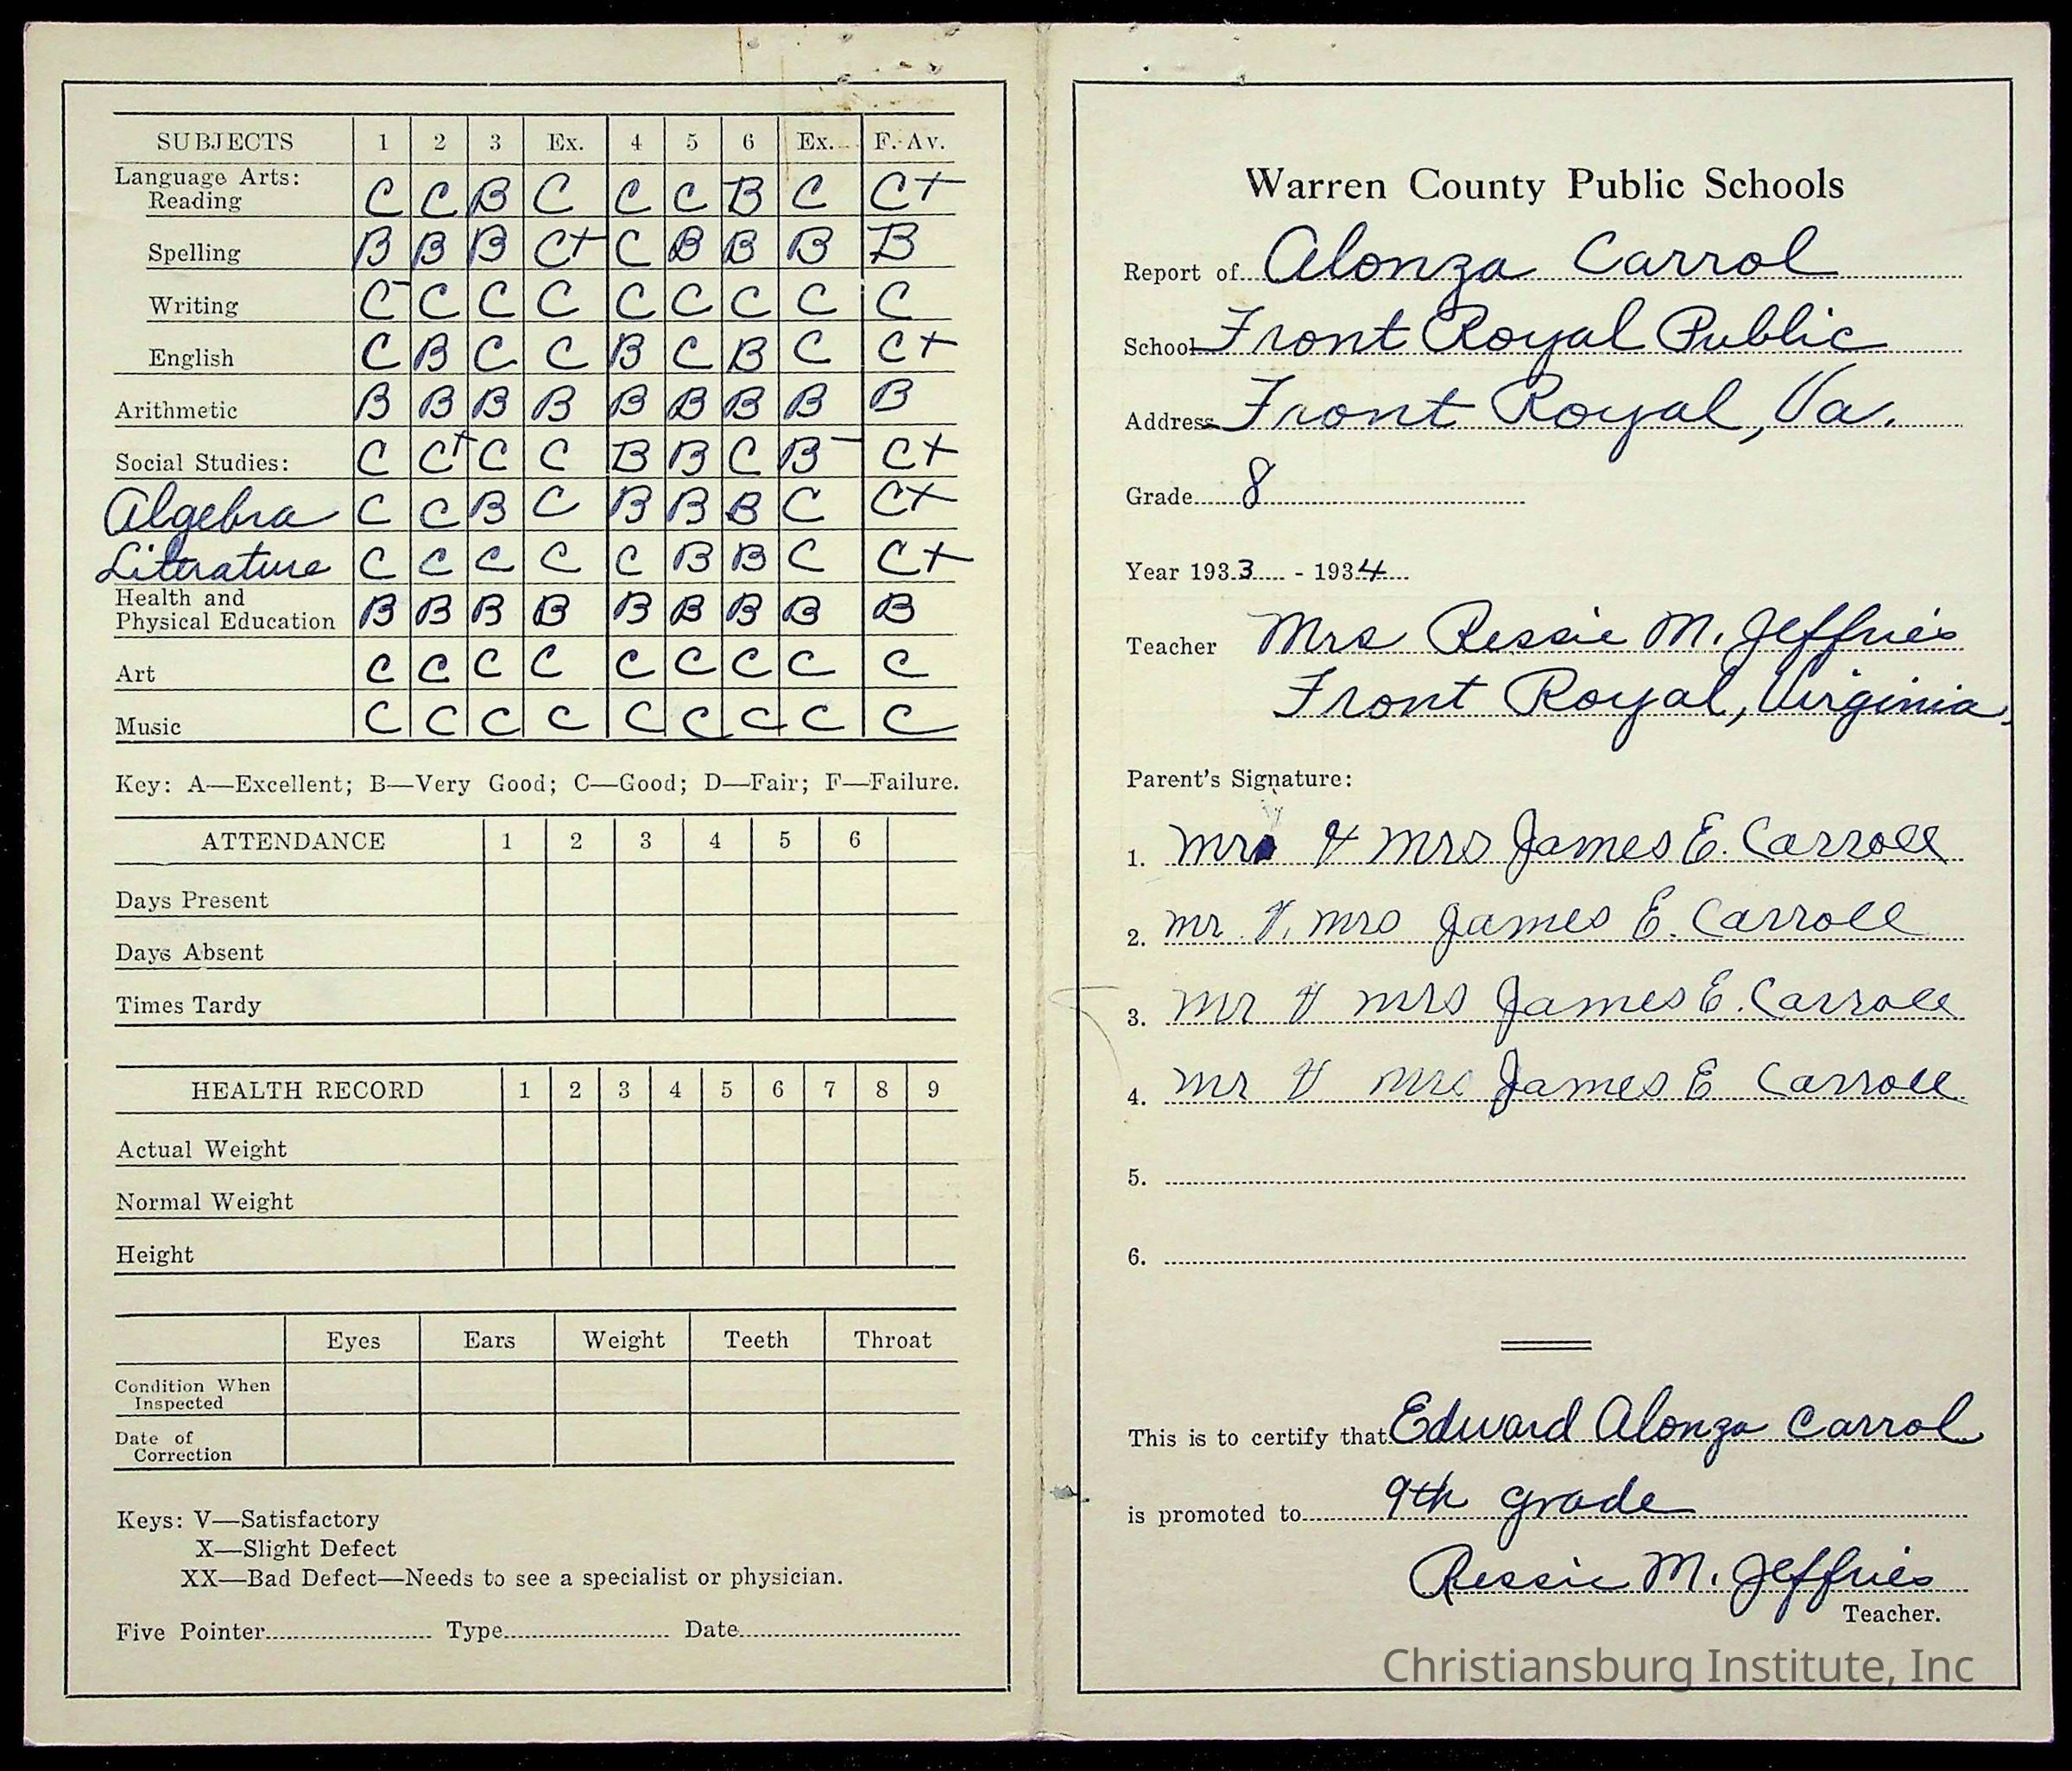 SUBJECTS 1 2 3 Ex. 4 5 6 Ex. F. Av.
Language Arts:
Reading C C B C C C B C C+
Spelling B B B C+ C B B B B
Writing C- C C C C C C C C
English C B C C B C B C C+
Arithmetic B B B B B B B B B
Social Studies: C C+ C C B B C B- C+
Algebra C C B C B B B C C+
Literature C C C C C B B C C+
Health and
Physical Education B B B B B B B B B
Art C C C C C C C C C
Music C C C C C C C C C
Key: A—Excellent; B—Very Good; C—Good; D—Fair; F—Failure.
ATTENDANCE 1 2 3 4 5 6
Days Present
Days Absent
Times Tardy
HEALTH RECORD 1 2 3 4 5 6 7 8 9
Actual Weight
Normal Weight
Height
Eyes Ears Weight Teeth Throat
Condition When
Inspected
Date of
Correction
Keys: V—Satisfactory
X—Slight Defect
XX—Bad Defect—Needs to see a specialist or physician.
Five Pointer Type Date
Warren County Public Schools
Report of Alonza Carrol
School Front Royal Public
Address Front Royal, Va.
Grade 8
Year 1933 - 1934
Teacher Mrs Ressie M. Jeffries
Front Royal, Virginia.
Parent's Signature:
1. Mr & Mrs James E. Carroll
2. Mr & Mrs James E. Carroll
3. Mr & Mrs James E. Carroll
4. Mr & Mrs James E Carroll
5.
6.
This is to certify that Edward Alonza Carrol
is promoted to 9th grade
Ressie M. Jeffries
Teacher.
Christiansburg Institute, Inc